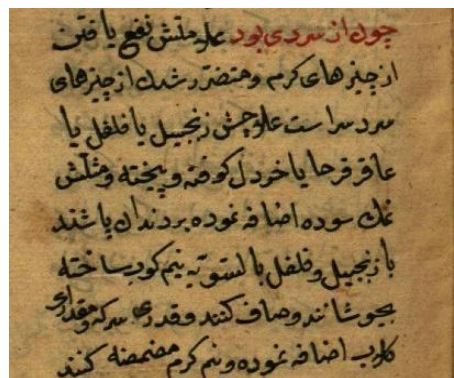 چون از سردی بود علامتش نفع یافتن
از چیزهای کرم و متضرر شدن از چیزهای
سرد سراست علاجش زنجبیل یا فلفل یا
عاقرقرحا یا خردل کوفته و پیخته و مثلش
نمک سوده اضافه نموده بر دندان پاشند
یا زنجبیل و فلفل بالسویه نیم کوب ساخته
بجوشانند و صاف کنند و قدری سرکه و مقداری
کلاب اضافه نموده و نیم کرم مضمضه کنند